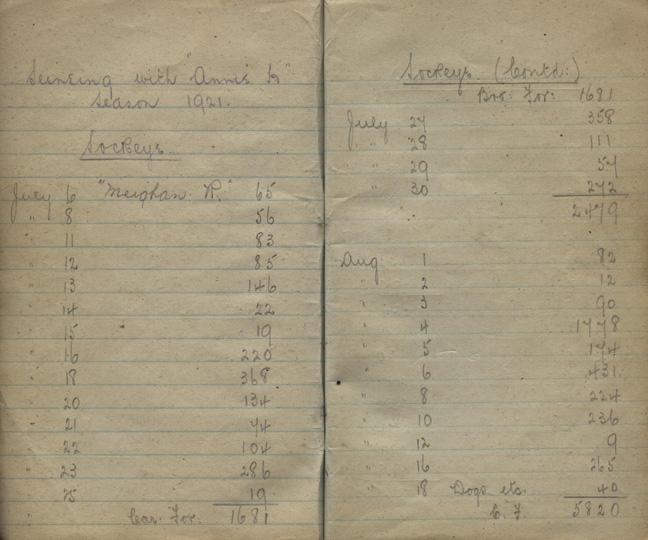 Seineing with "Annis H"
Season 1921.
Sockeys
July 6 "Meighan R." 65
" 8 56
" 11 83
" 12 85
" 13 146
" 14 22
" 15 19
" 16 220
" 18 368
" 20 134
" 21 74
" 22 104
" 23 286
" 25 19
Car. For. 1681
Sockeys. (Contd:)
Bro: For: 1681
July 27 358
" 28 111
" 29 57
" 30 272
2479
Aug 1 82
" 2 12
" 3 90
" 4 1778
" 5 174
" 6 431
" 8 224
" 10 236
" 12 9
" 16 265
" 18 Dogs etc. 40
C. F. 5820